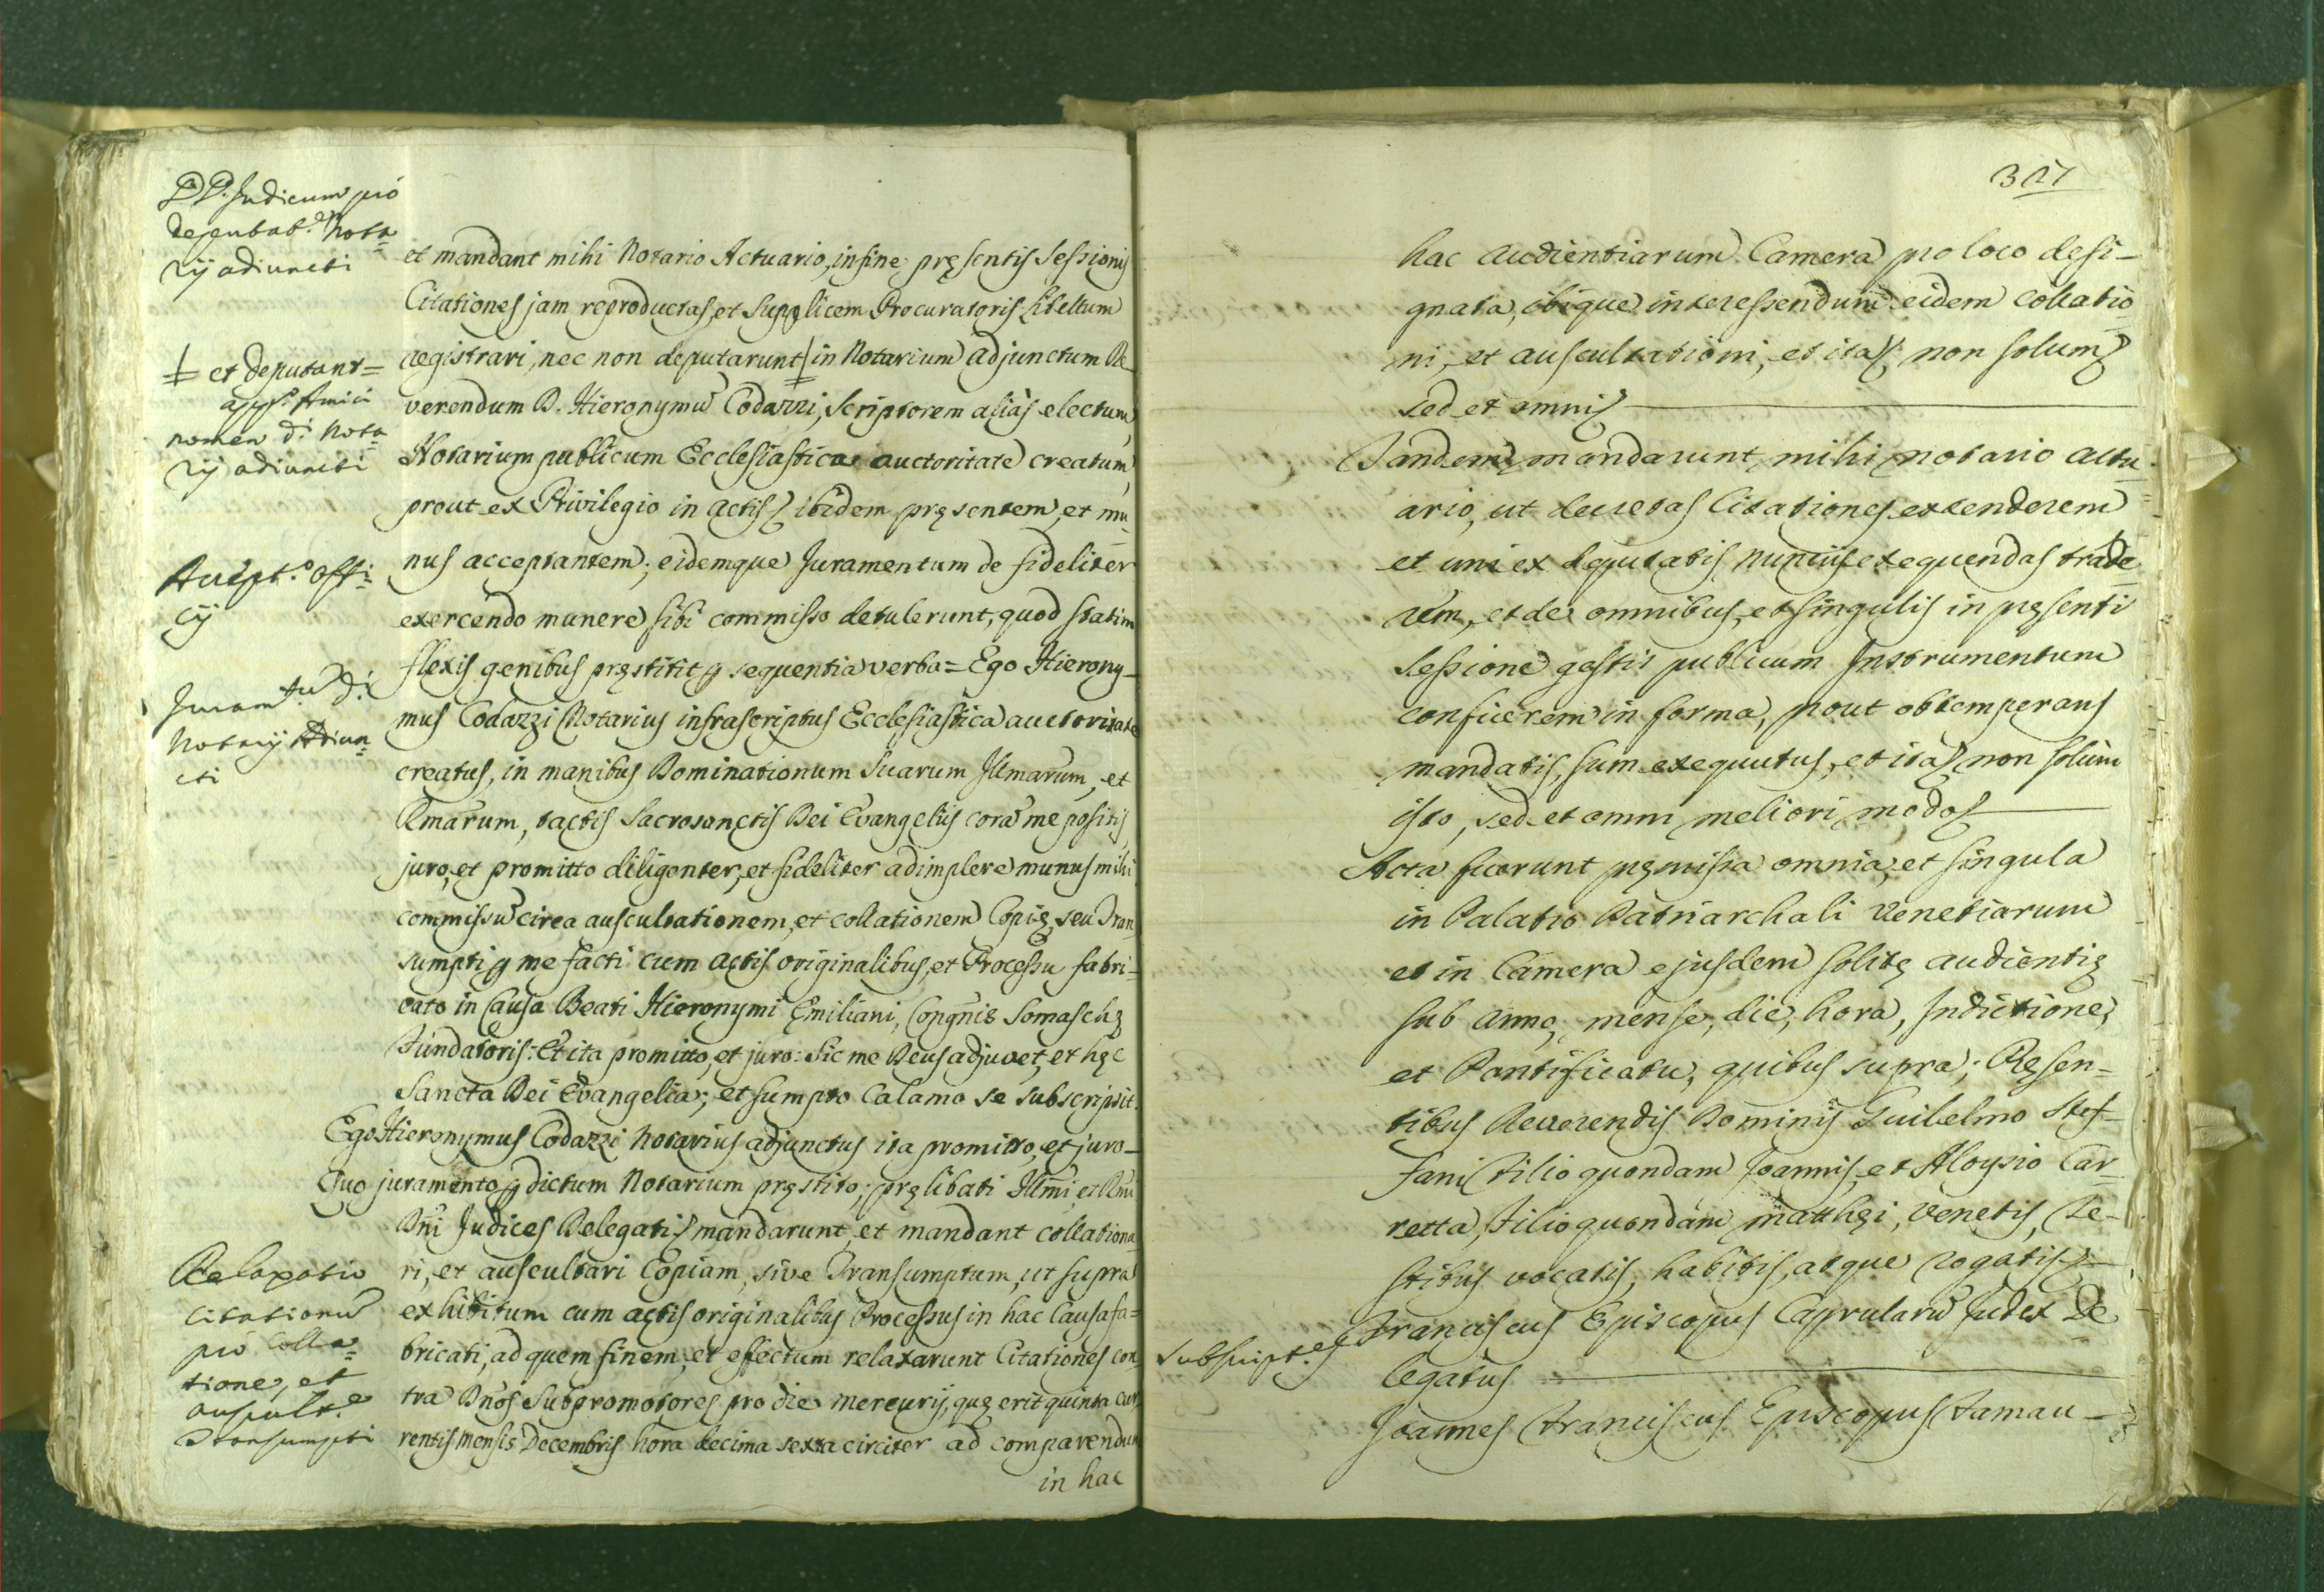 DD. Judicum pro
deputat.e Nota
rij adiuncti
et mandant mihi Notario Actuario, in fine pręsentis Sessionis
Citationes jam reproductas, et Supplicem Procuratoris libellum
registrari, nec non deputarunt in Notarium adjunctum Re
verendum D. Hieronymũ Codazzi, Scriptorem aliàs electum,
Notarium publicum Ecclesiastica auctoritate creatum,
prout ex Privilegio in actis ibidem pręsentem, et mu
nus acceptantem; eidemque Juramentum de fideliter
exercendo munere sibi commisso detulerunt, quod statim
flexis genibus pręstitit ꝑ sequentia verba = Ego Hierony-
mus Codazzi Notarius infrascriptus Ecclesiastica auctoritate
creatus, in manibus Dominationum Suarum Illmarum, et
Rmarum, tactis Sacrosanctis Dei Evangeliis corã me positis,
juro, et promitto diligenter, et fideliter adimplere munus mihi
commissũ circa auscultationem, et collationem Copię, seu Tran
sumpti ꝑ me facti cum actis originalibus, et Processu fabri-
cato in Causa Beati Hieronymi Ęmiliani, Congñis Somaschę
Fundatoris: Et ita promitto, et juro: Sic me Deus adjuvet, et hęc
Sancta Dei Evangelia; et sumpto Calamo se subscripsit.
Ego Hieronymus Codazzi Notarius adjunctus ita promitto, et juro-
Quo juramento ꝑ dictum Notarium pręstito; pręlibati Illmi, et Rmi
Dñi Judices Delegati mandarunt, et mandant collationa
ri, et auscultari Copiam, sive Transumptum, ut supra
exhibitum cum actis originalibus Processus in hac Causa fa=
bricati, ad quem finem, et effectum relaxarunt Citationes con
tra Dños Subpromotores pro die Mercurij, quę erit quinta cur
rentis mensis Decembris hora decima sexta circiter ad comparendum
in hac
ǂ et deputant=
nomen d.i Nota
rij adiuncti
Accept.o offi=
cij
Juram.tũ d.i
Notarij Adiun
cti
Relaxatio
Citationũ
pro Colla=
tione, et
auscult.e
Transumpti
317
hac audientiarum Camera pro loco desi-
gnata, ibique interessendum eidem collatio
ni, et auscultationi, et ita non solum
sed et omni
Tandem mandarunt mihi notario actu
ario, ut decretas Citationes extenderem
et uni ex deputatis nunciis exequendas trade
rem, et de omnibus, et singulis in pręsenti
Sessione gestis publicum Instrumentum
conficerem in forma, prout obtemperans
mandatis, sum exequutus, et ita non solùm
isto, sed et omni meliori modo
Acta fuerunt pręmissa omnia, et singula
in Palatio Patriarchali Venetiarum
et in Camera ejusdem solitę audientię
sub anno, mense, die, hora, Indictione,
et Pontificatu, quibus supra; Pręsen-
tibus Reverendis Dominis Guilelmo Stef-
fani filio quondam Joannis, et Aloysio Car
retta, filio quondam Matthęi, Venetis, Te-
stibus vocatis, habitis, atque rogatis
Subscript.es
Franciscus Episcopus Caprularũ Judex De
legatus
Joannes Franciscus Episcopus Famau-